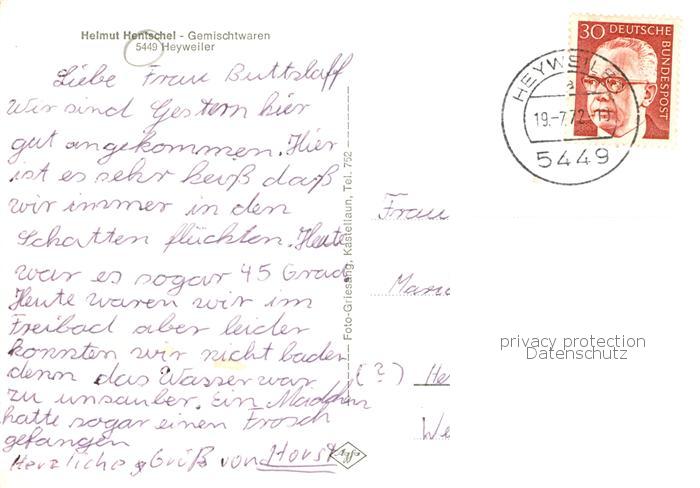 Helmut Hentschel - Gemischtwaren
5449 Heyweiler
Liebe Frau Buttstaff
Wir sind Gestern hier
gut angekommen. Hier
ist es sehr heiß daß
wir immer in den
Schatten flüchten. Heute
war es sogar 45 Grad
Heute waren wir im
Freibad aber leider
konnten wir nicht baden
denn das Wasser war
zu unsauber. Ein Mädchen
hatte sogar einen Frosch
gefangen
Herzliche Grüß von Horst
Foto-Griesang, Kastellaun, Tel. 752
30 DEUTSCHE
BUNDESPOST
HEYWEILER
a
19.-7.72.-10
5449
Frau
(?) He
We
privacy protection
Datenschutz